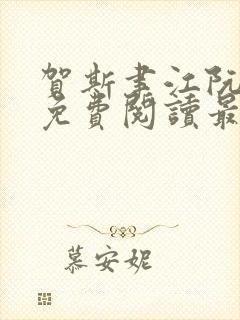 賀斯書江阮
免費閱讀最
慕安妮